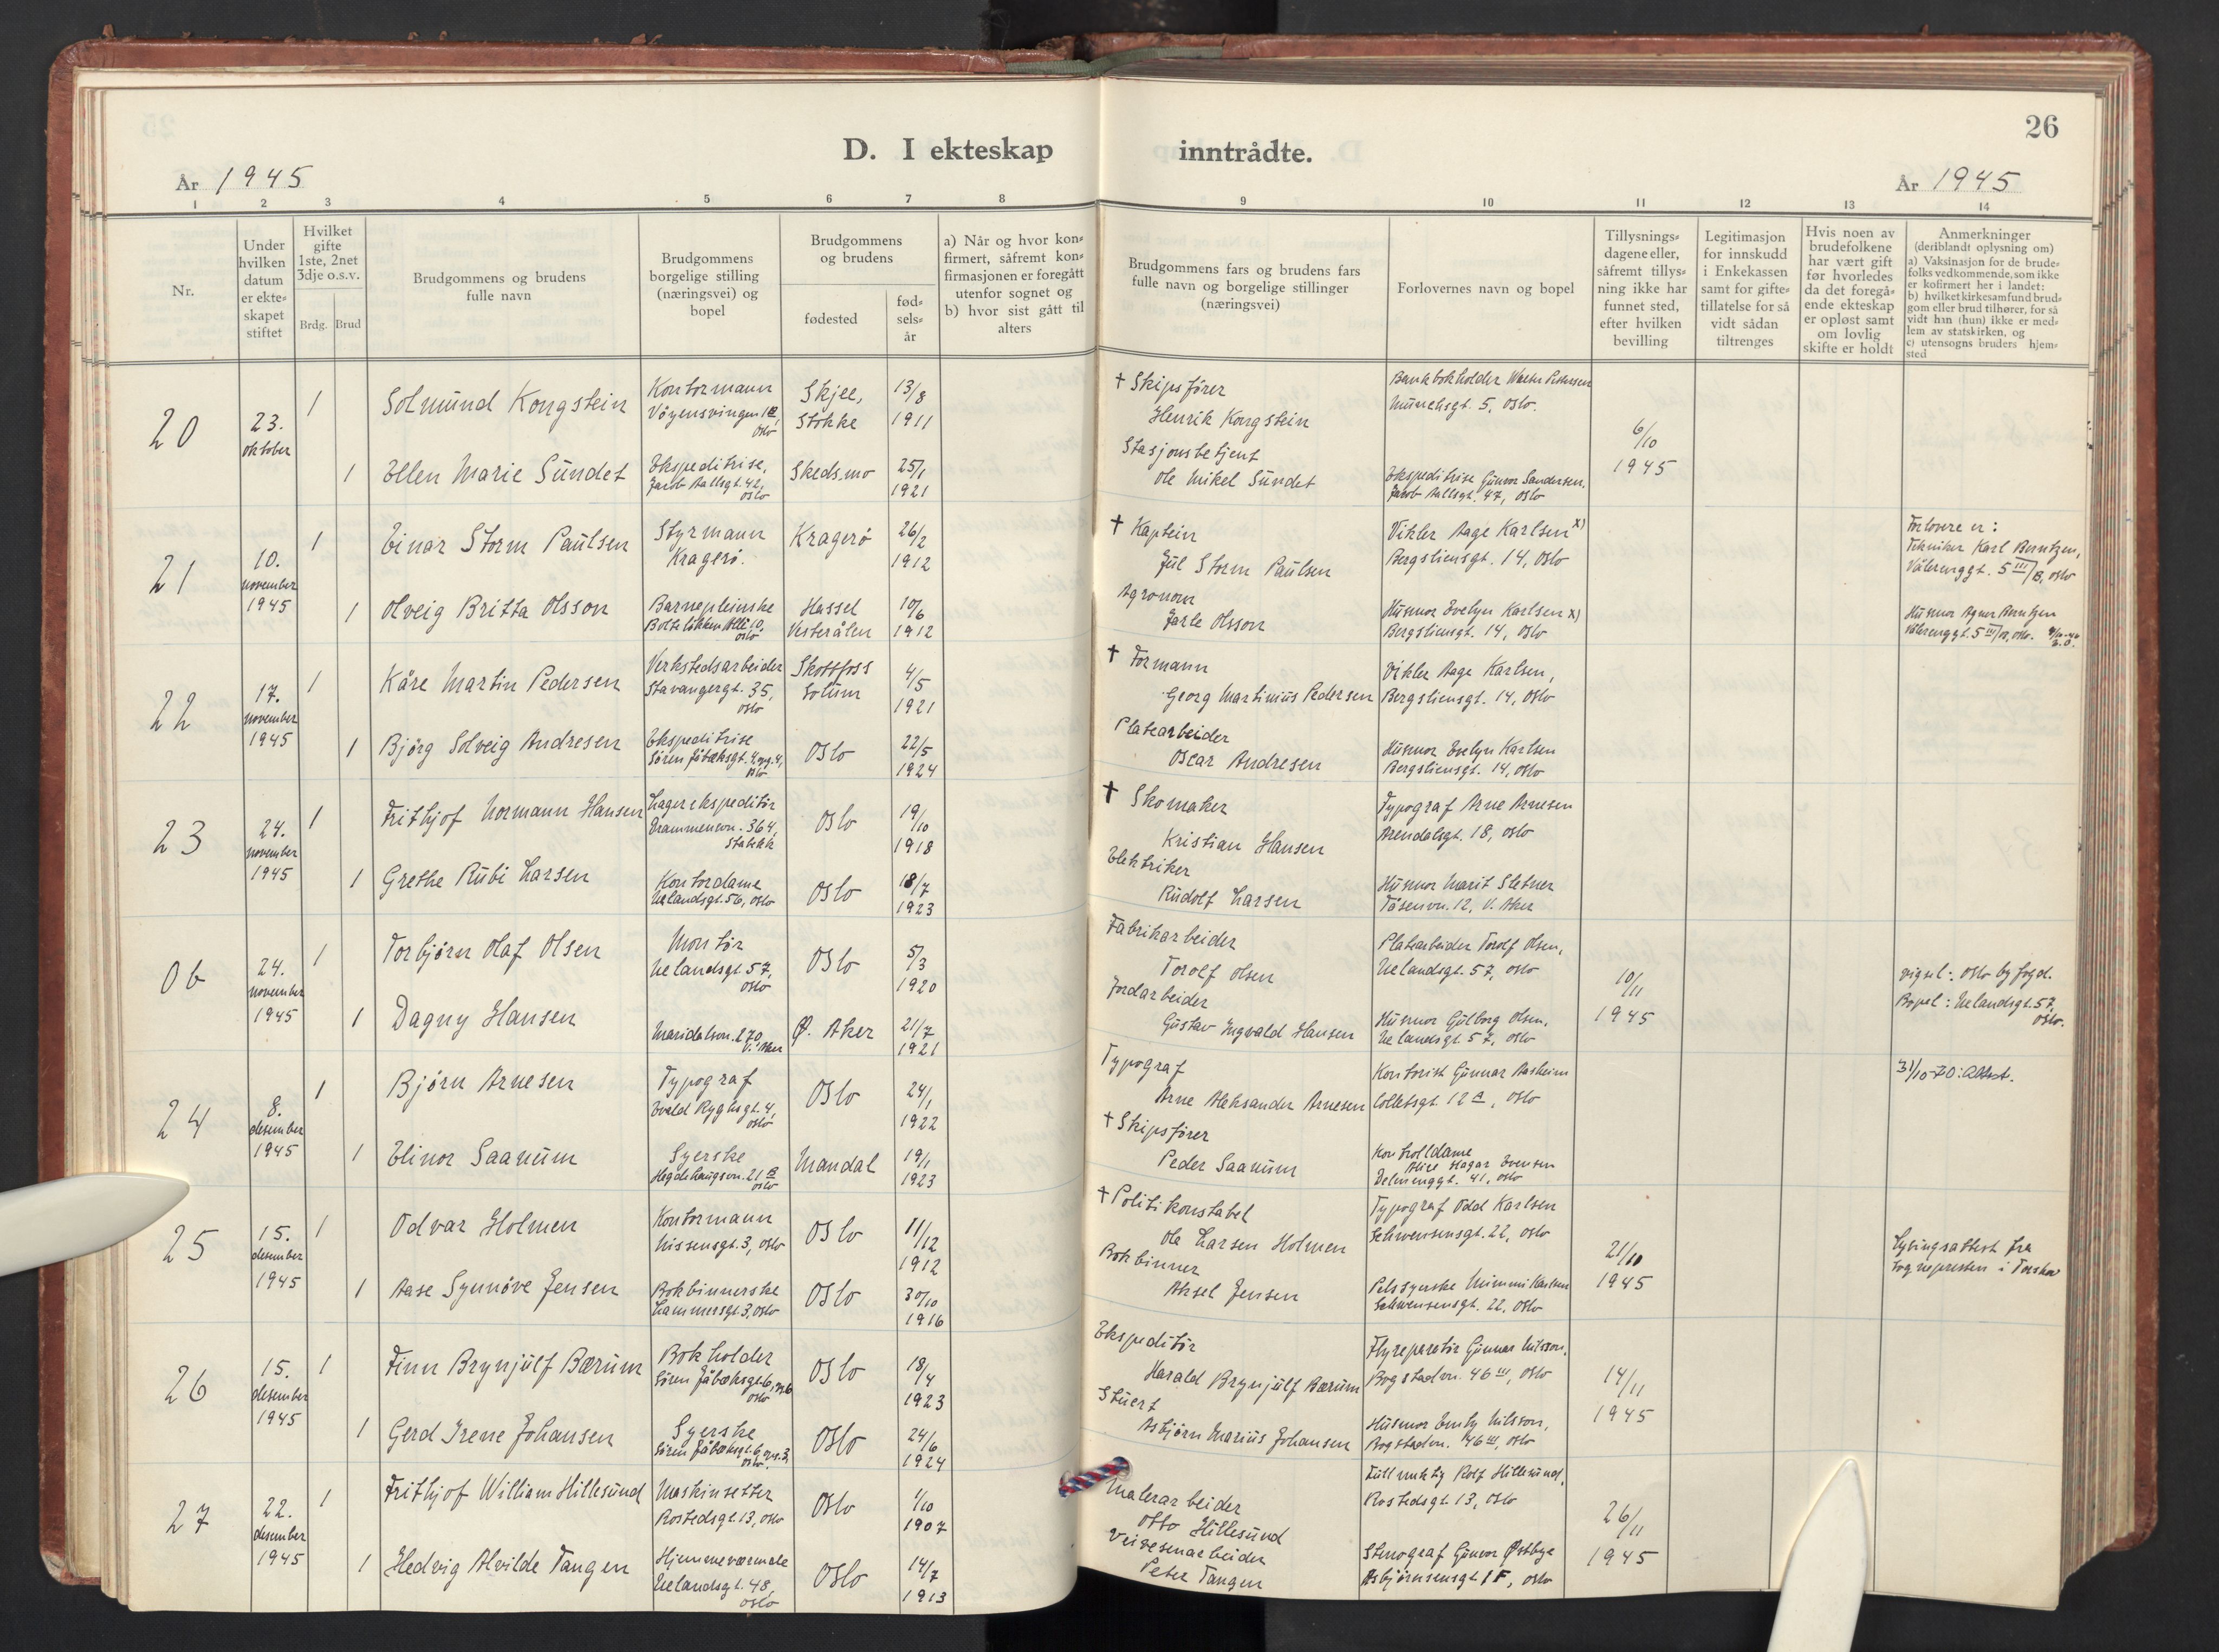 D. I ekteskap inntrådte.
26
År 1945
År 1945
1 2 3 4 5 6 7 8 9 10 11 12 13 14
Nr.
Under
hvilken
datum
er ekte-
skapet
stiftet
Hvilket
gifte
1ste, 2net
3dje o.s.v.
Brdg. Brud
Brudgommens og brudens
fulle navn
Brudgommens
borgelige stilling
(næringsvei) og
bopel
Brudgommens
og brudens
fødested
fød-
sels-
år
a) Når og hvor kon-
firmert, såfremt kon-
firmasjonen er foregått
utenfor sognet og
b) hvor sist gått til
alters
Brudgommens fars og brudens fars
fulle navn og borgelige stillinger
(næringsvei)
Forlovernes navn og bopel
Tillysnings-
dagene eller,
såfremt tillys-
ning ikke har
funnet sted,
efter hvilken
bevilling
Legitimasjon
for innskudd
i Enkekassen
samt for gifte-
tillatelse for så
vidt sådan
tiltrenges
Hvis noen av
brudefolkene
har vært gift
før hvorledes
da det foregå-
ende ekteskap
er opløst samt
om lovlig
skifte er holdt
Anmerkninger
(deriblandt oplysning om)
a) Vaksinasjon for de brude-
folks vedkommende, som ikke
er kofirmert her i landet:
b) hvilket kirkesamfund brud-
gom eller brud tilhører, for så
vidt han (hun) ikke er med-
lem av statskirken, og
c) utensogns bruders hjem-
sted
20
23.
oktober
1
Solmund Kongstein
Kontormann
Vøyensvingen 1
Oslo
Skjee,
Stokke
13/8
1911
† Skipsfører
Henrik Kongstein
Bankbokholder Walter Pedersen
Munchsgt. 5, Oslo.
6/10
1945
1
Ellen Marie Sundet
Ekspeditrise,
Jacob Aallsgt. 42,
Oslo
Skedsmo
25/1
1921
Stasjonsbetjent
Ole Mikel Sundet
Ekspeditrise Gunvor Sandersen,
Jacob Aallsgt. 47, Oslo
21
10.
november
1945
1
Einar Storm Paulsen
Styrmann
Kragerø.
Kragerø
26/2
1912
† Kaptein
Jul Storm Paulsen
Vikler Aage Karlsen x)
Bergsliensgt. 14, Oslo
Forlovere er:
Tekniker Karl Berntzen,
Vålerenggt. 5 III/B, Oslo
1
Olveig Britta Olsson
Barnepleierske
Bolteløkken Allé 10,
Oslo
Hassel
Vesterålen
10/6
1912
Agronom
Jarle Olsson
Husmor Evelyn Karlsen x)
Bergsliensgt. 14, Oslo
Husmor Agnes Berntzen
Vålerenggt. 5 III/B, Oslo.
22
17.
november
1945
1
Kåre Martin Pedersen
Verkstedsarbeider
Stavangergt. 35,
Oslo
Skotfoss
Solum
4/5
1921
† Formann
Georg Martinius Pedersen
Vikler Aage Karlsen,
Bergsliensgt. 14, Oslo
1
Bjørg Solveig Andresen
Ekspeditrise
Søren Jåbæksgt. 4, opg. 4,
Oslo
Oslo
22/5
1924
Platearbeider
Oscar Andresen
Husmor Evelyn Karlsen
Bergsliensgt. 14, Oslo
23
24.
november
1945
1
Frithjof Normann Hansen
Lagerekspeditør
Drammensvn. 364,
Stabekk
Oslo
19/10
1918
† Skomaker
Kristian Hansen
Typograf Arne Arnesen
Arendalsgt. 18, Oslo
1
Grethe Rubi Larsen
Kontordame
Uelandsgt. 56, Oslo
Oslo
18/7
1923
Elektriker
Rudolf Larsen
Husmor Marit Sletner
Tåsenvn. 12, V. Aker
Ob
24.
november
1945
1
Torbjørn Olaf Olsen
Montør
Uelandsgt. 57,
Oslo
Oslo
5/3
1920
Fabrikarbeider
Torolf Olsen
Platearbeider Torolf Olsen,
Uelandsgt. 57, Oslo
10/11
1945
Vigsel: Oslo byfogd.
Bopel: Uelandsgt. 57,
Oslo.
1
Dagny Hansen
Maridalsvn. 270,
V. Aker
Ø. Aker
21/7
1921
Jordarbeider
Gustav Ingvald Hansen
Husmor Gulborg Olsen,
Uelandsgt. 57, Oslo
24
8.
desember
1945
1
Bjørn Arnesen
Typograf
Evald Ryghsgt. 4,
Oslo
Oslo
24/1
1922
Typograf
Arne Aleksander Arnesen
Kontorist Gunnar Aasheim
Colletsgt. 12 A, Oslo
31/10-70: Attest.
1
Elinor Saanum
Syerske
Hegdehaugsvn. 21 B
Oslo
Mandal
19/1
1923
† Skipsfører
Peder Saanum
Kontrolldame
Alice Hagar Evensen
Delenenggt. 41, Oslo
25
15.
desember
1945
1
Odvar Holmen
Kontormann
Nissensgt. 3, Oslo
Oslo
11/12
1912
† Politikonstabel
Ole Larsen Holmen
Typograf Odd Karlsen
Schwensensgt. 22, Oslo
21/10
1945
Lysingsattest fra
sognepresten i Torshov
1
Aase Synnøve Jensen
Bokbinnerske
Lammersgt. 3, Oslo
Oslo
30/10
1916
Bokbinner
Aksel Jensen
Pelssyerske Mimmi Karlsen
Schwensensgt. 22, Oslo
26
15.
desember
1945
1
Finn Brynjulf Bærum
Bokholder
Søren Jåbæksgt. 6, opg. 6
Oslo
Oslo
18/4
1923
Ekspeditør
Harald Brynjulf Bærum
Flyreparatør Gunnar Nilsson,
Bogstadvn. 46 III, Oslo
14/11
1945
1
Gerd Irene Johansen
Syerske
Søren Jåbæksgt. 6, opg. 3,
Oslo.
Oslo
24/6
1924
Stuert
Asbjørn Marius Johansen
Husmor Emly Nilsson,
Bogstadvn. 46 III, Oslo
27
22.
desember
1945
1
Frithjof William Hillesund
Maskinsetter
Rostedsgt. 13, Oslo
Oslo
1/10
1907
Malerarbeider
Otto Hillesund
Fullmektig Rolf Hillesund,
Rostedsgt. 13, Oslo
26/11
1945
1
Hedvig Alvilde Tangen
Hjemmeværende
Uelandsgt. 48,
Oslo
Oslo
14/7
1913
Veivesenarbeider
Peter Tangen
Stenograf Gunvor Østbye
Asbjørnsensgt. 1 F, Oslo